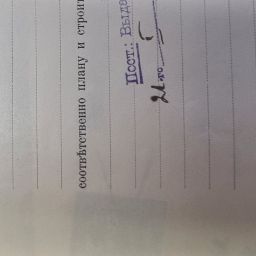 соотвѣтственно плану и строи
Пост.: Выда
21го